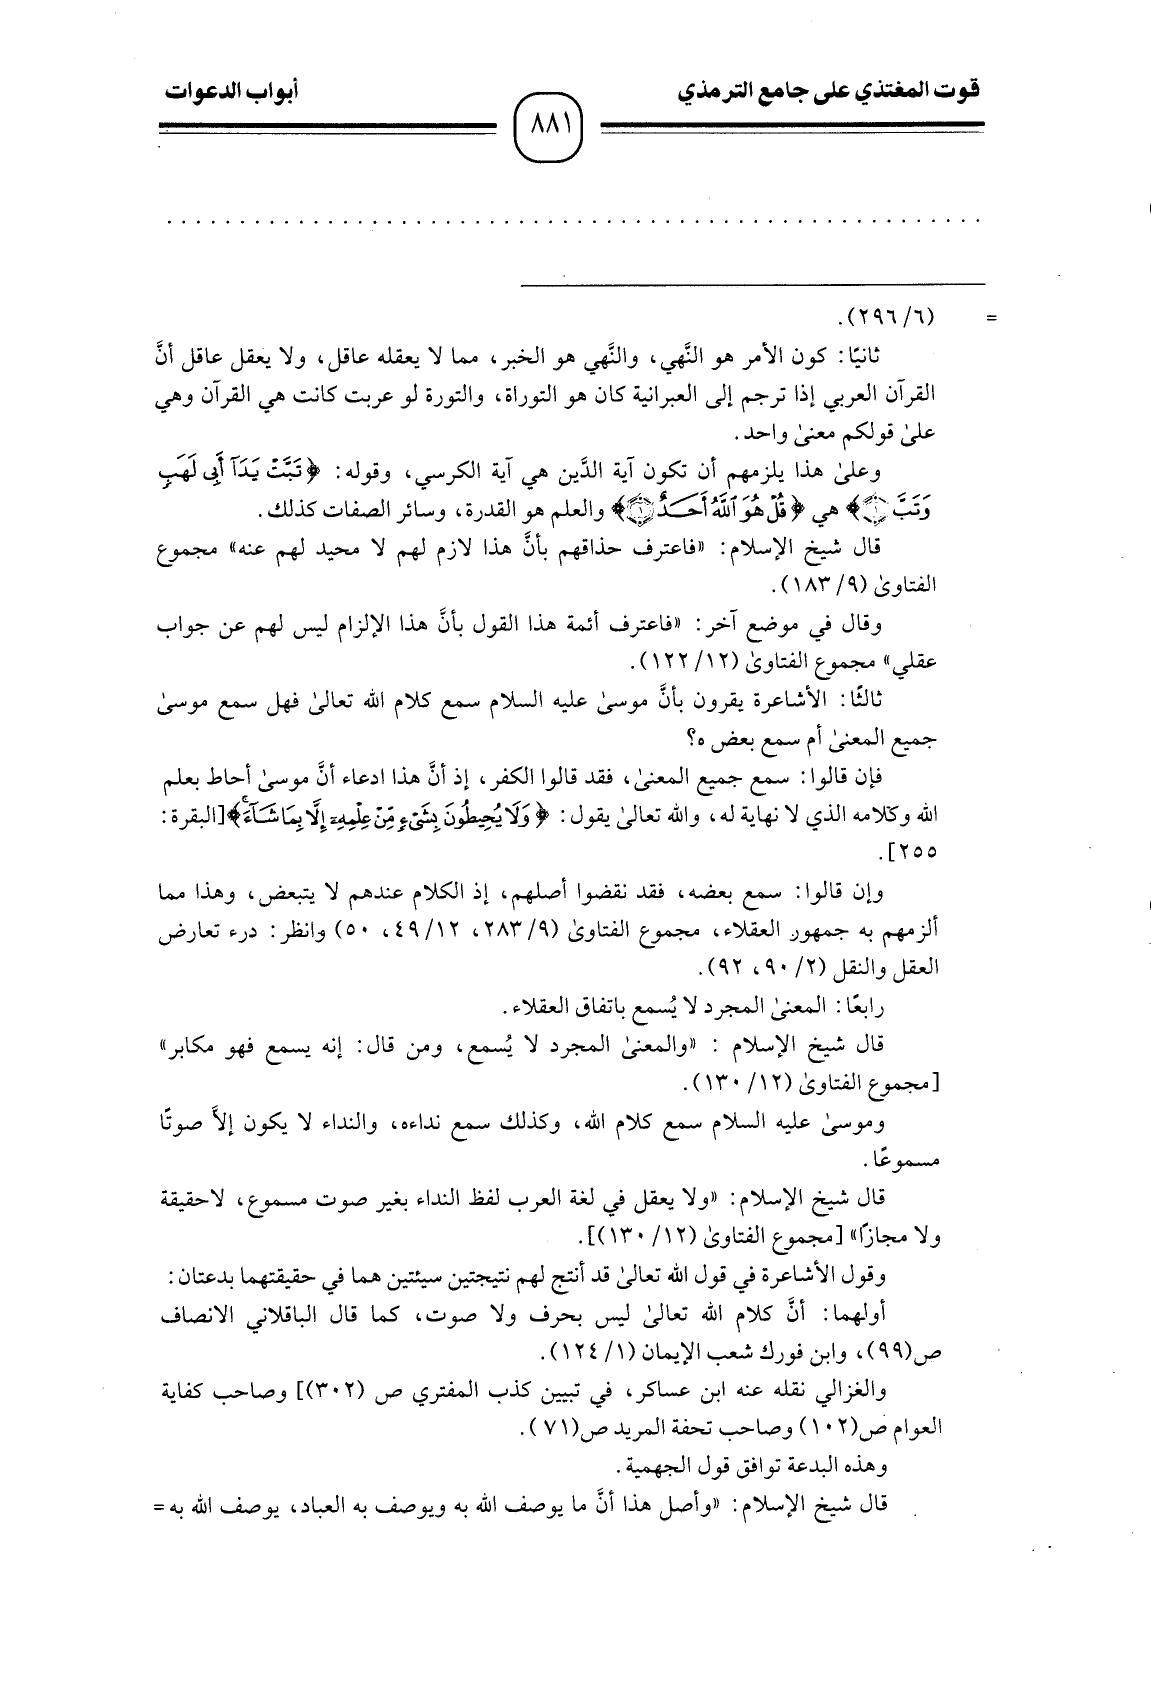 قوت المغتذي على جامع الترمذي
أبواب الدعوات
٨٨١
= (٦/ ٢٩٦).
ثانيًا: كون الأمر هو النَّهي، والنَّهي هو الخبر، مما لا يعقله عاقل، ولا يعقل عاقل أنَّ
القرآن العربي إذا ترجم إلى العبرانية كان هو التوراة، والتورة لو عربت كانت هي القرآن وهي
علىٰ قولكم معنىٰ واحد.
وعلىٰ هذا يلزمهم أن تكون آية الدَّين هي آية الكرسي، وقوله: ﴿تَبَّتْ يَدَآ أَبِى لَهَبٍ
وَتَبَّ ۝١﴾ هي ﴿قُلْ هُوَ ٱللَّهُ أَحَدٌ ۝١﴾ والعلم هو القدرة، وسائر الصفات كذلك.
قال شيخ الإسلام: «فاعترف حذاقهم بأنَّ هذا لازم لهم لا محيد لهم عنه» مجموع
الفتاوىٰ (٩/ ١٨٣).
وقال في موضع آخر: «فاعترف أئمة هذا القول بأنَّ هذا الإلزام ليس لهم عن جواب
عقلي» مجموع الفتاوىٰ (١٢/ ١٢٢).
ثالثًا: الأشاعرة يقرون بأنَّ موسىٰ عليه السلام سمع كلام الله تعالىٰ فهل سمع موسىٰ
جميع المعنىٰ أم سمع بعض ه؟
فإن قالوا: سمع جميع المعنىٰ، فقد قالوا الكفر، إذ أنَّ هذا ادعاء أنَّ موسىٰ أحاط بعلم
الله وكلامه الذي لا نهاية له، والله تعالىٰ يقول: ﴿وَلَا يُحِيطُونَ بِشَىْءٍ مِّنْ عِلْمِهِۦٓ إِلَّا بِمَا شَآءَ﴾[البقرة:
٢٥٥].
وإن قالوا: سمع بعضه، فقد نقضوا أصلهم، إذ الكلام عندهم لا يتبعض، وهذا مما
ألزمهم به جمهور العقلاء، مجموع الفتاوىٰ (٩/ ٢٨٣، ١٢/ ٤٩، ٥٠) وانظر: درء تعارض
العقل والنقل (٢/ ٩٠، ٩٢).
رابعًا: المعنىٰ المجرد لا يُسمع باتفاق العقلاء.
قال شيخ الإسلام : «والمعنىٰ المجرد لا يُسمع، ومن قال: إنه يسمع فهو مكابر»
[مجموع الفتاوىٰ (١٢/ ١٣٠).
وموسىٰ عليه السلام سمع كلام الله، وكذلك سمع نداءه، والنداء لا يكون إلاَّ صوتًا
مسموعًا.
قال شيخ الإسلام: «ولا يعقل في لغة العرب لفظ النداء بغير صوت مسموع، لاحقيقة
ولا مجازًا» [مجموع الفتاوىٰ (١٢/ ١٣٠)].
وقول الأشاعرة في قول الله تعالىٰ قد أنتج لهم نتيجتين سيئتين هما في حقيقتهما بدعتان:
أولهما: أنَّ كلام الله تعالىٰ ليس بحرف ولا صوت، كما قال الباقلاني الانصاف
ص(٩٩)، وابن فورك شعب الإيمان (١/ ١٢٤).
والغزالي نقله عنه ابن عساكر، في تبيين كذب المفتري ص (٣٠٢)] وصاحب كفاية
العوام ص(١٠٢) وصاحب تحفة المريد ص(٧١).
وهذه البدعة توافق قول الجهمية.
قال شيخ الإسلام: «وأصل هذا أنَّ ما يوصف الله به ويوصف به العباد، يوصف الله به =